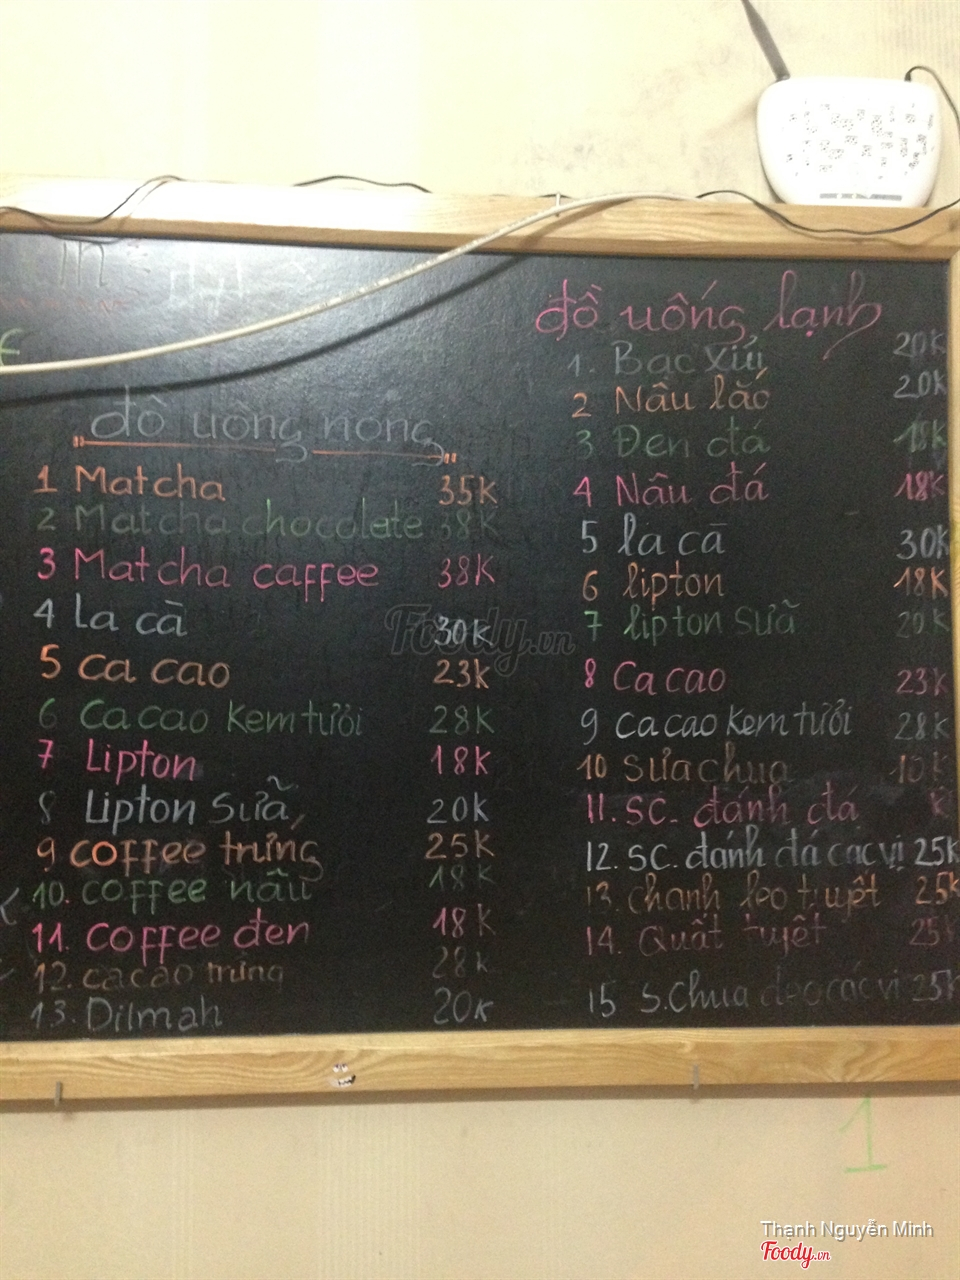 đồ uống nóng
1 Matcha 35K
2 Matcha chocolate 38K
3 Matcha caffee 38K
4 La cà 30K
5 Ca cao 23K
6 Ca cao kem tươi 28K
7 Lipton 18K
8 Lipton Sữa 20K
9 coffee trứng 25K
10. coffee nâu 18K
11. coffee đen 18K
12. cacao trứng 28K
13. Dilmah 20K
đồ uống lạnh
1. Bạc xỉu 20K
2 Nâu lắc 20K
3 Đen đá 18K
4 Nâu đá 18K
5 la cà 30K
6 lipton 18K
7 lipton sữa 20K
8 Ca cao 23K
9 ca cao kem tươi 28K
10 sữa chua K
11. SC. đánh đá K
12. SC. đánh đá các vị 25K
13. chanh leo tuyết 25K
14. Quất tuyết 25K
15 S.Chua dẻo các vị 25K
Foody.vn
1
Thạnh Nguyễn Minh
Foody.vn